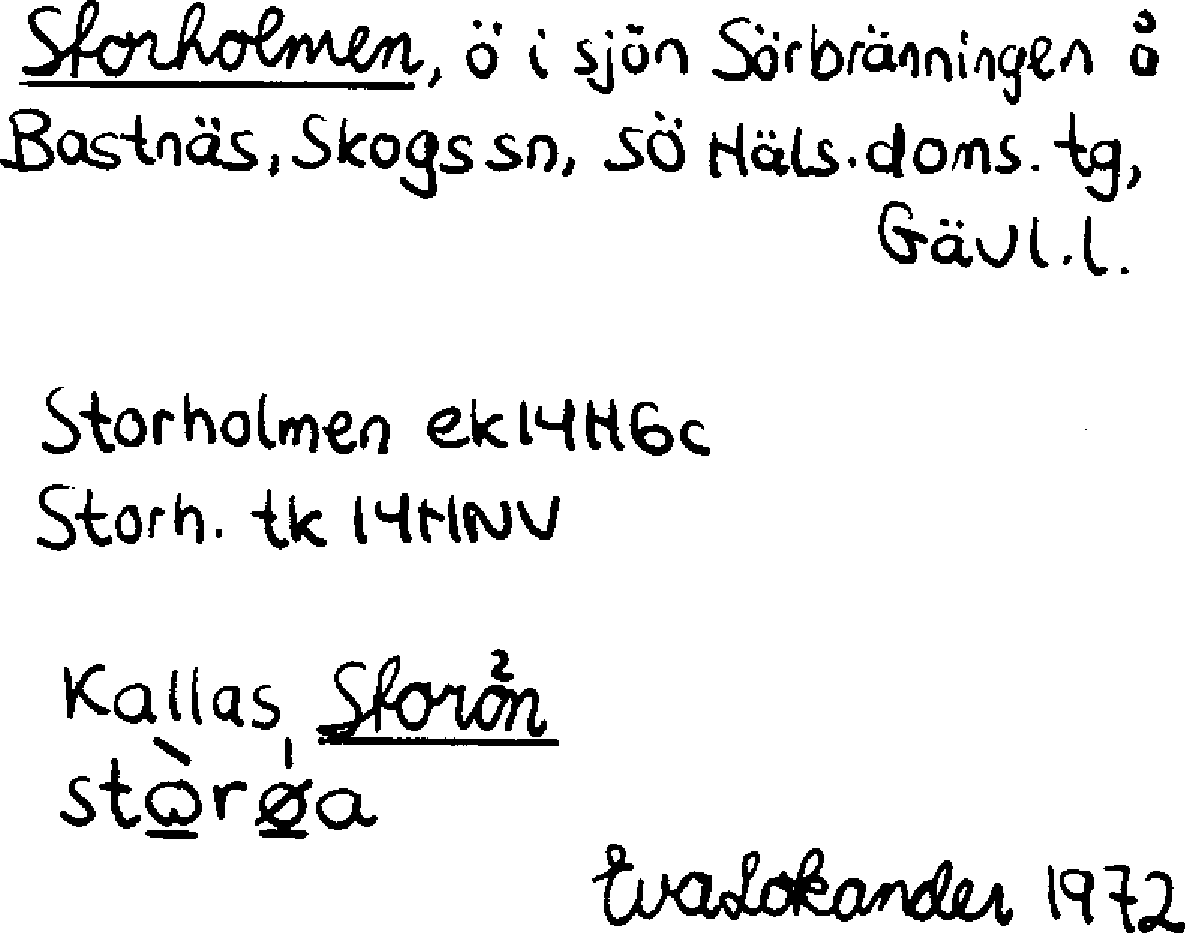 Storholmen, ö i sjön Sörbränningen å
Bastnäs, Skogs sn, SÖ Häls. doms. tg,
Gävl. l.
Storholmen ek 14H6c
Storh. tk 14HNV
Kallas Storön
Eva Lokander 1972